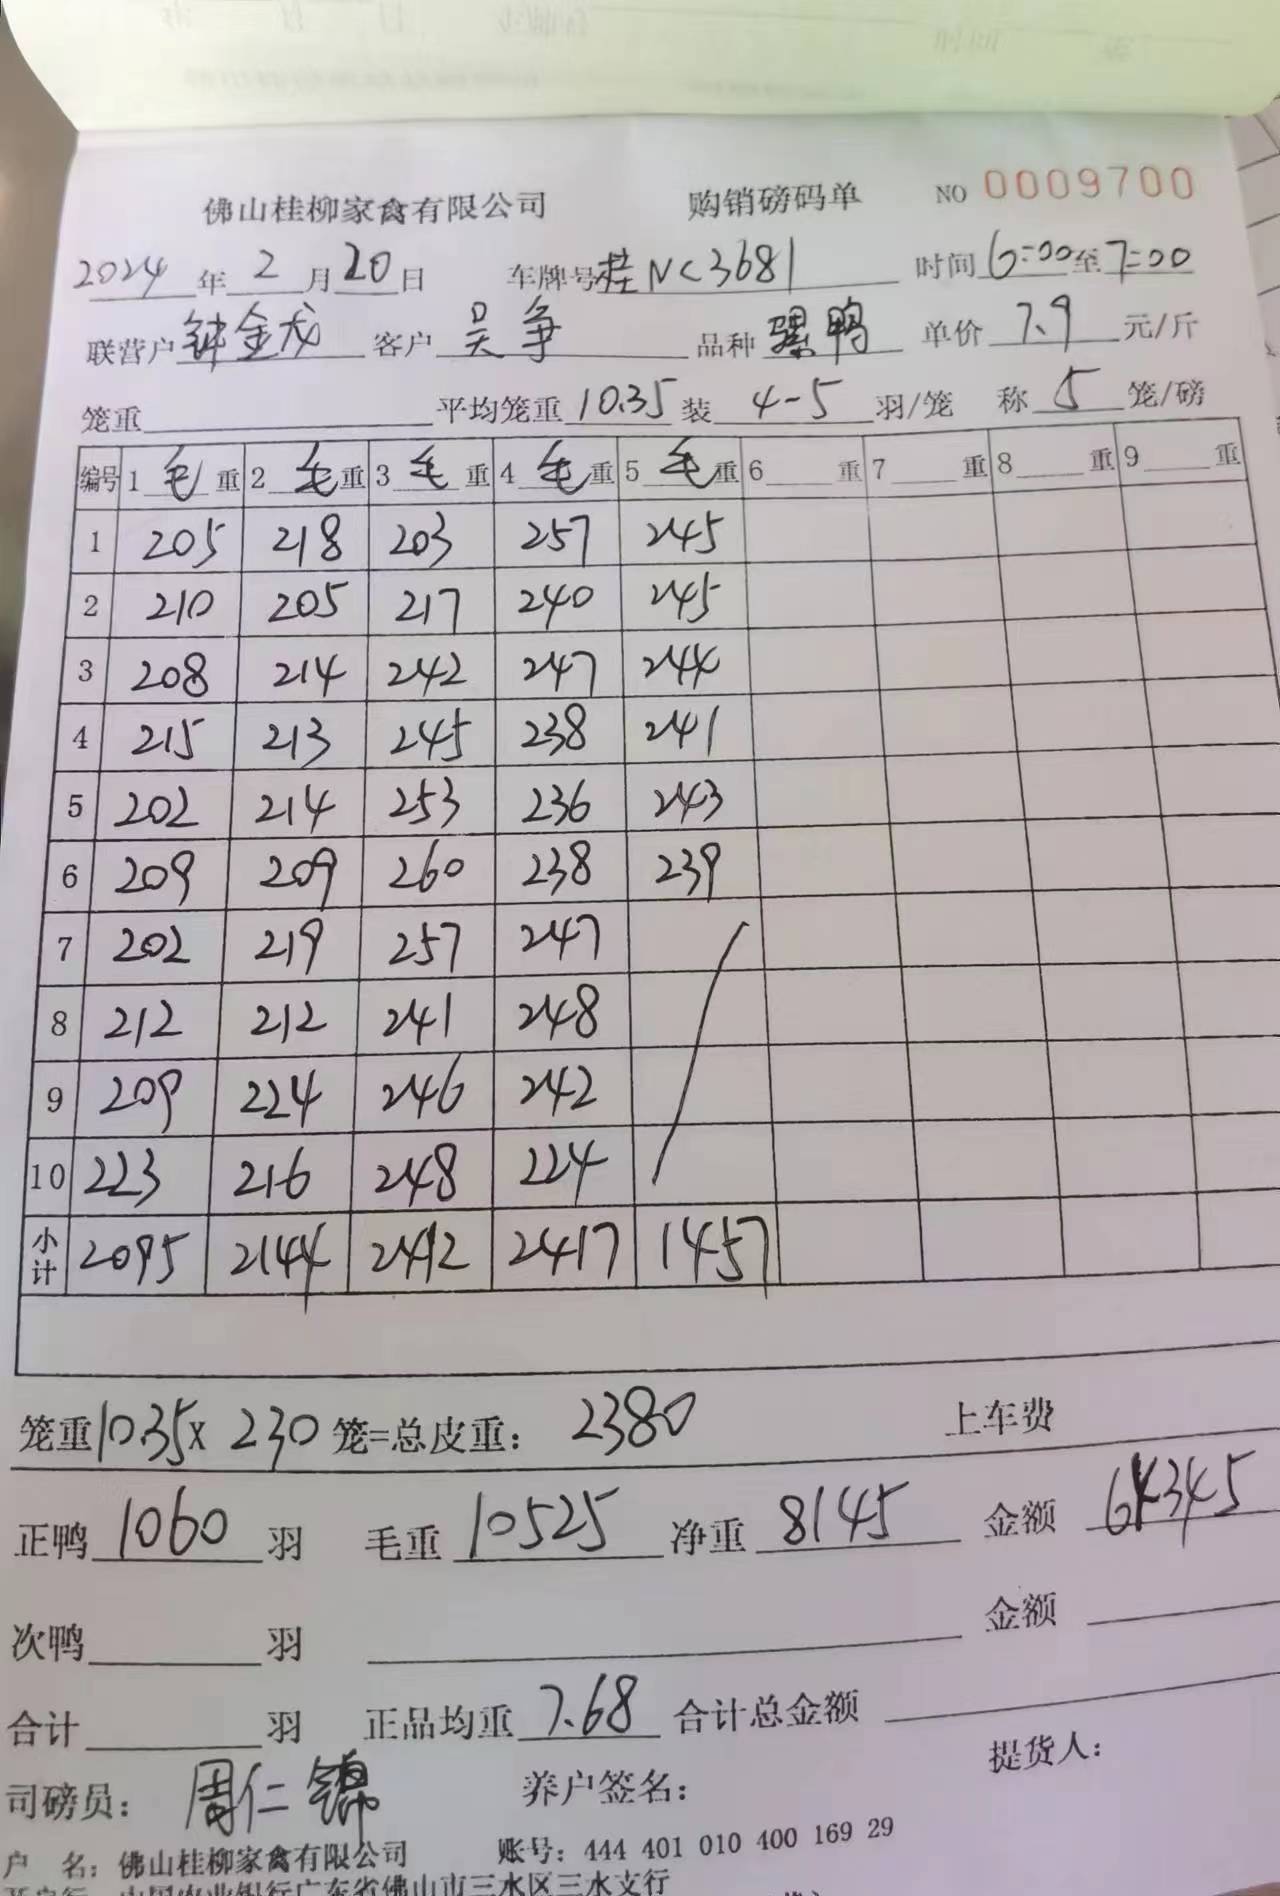 佛山桂柳家禽有限公司 购销磅码单 NO 0009700
2024年2月20日 车牌号桂NC3681 时间6:00至7:00
联营户钟金龙 客户吴争 品种骡鸭 单价7.9元/斤
笼重 平均笼重10.35装4-5羽/笼 称5笼/磅
编号 1毛重 2毛重 3毛重 4毛重 5毛重 6重 7重 8重 9重
1 205 218 203 257 245
2 210 205 217 240 245
3 208 214 242 247 244
4 215 213 245 238 241
5 202 214 253 236 243
6 209 209 260 238 239
7 202 219 257 247
8 212 212 241 248
9 209 224 246 242
10 223 216 248 224
小计 2095 2144 2412 2417 1457
笼重10.35×230笼=总皮重：2380 上车费
正鸭1060羽 毛重10525净重8145 金额64345
次鸭羽 金额
合计羽 正品均重7.68合计总金额
司磅员：周仁锦 养户签名： 提货人：
户 名：佛山桂柳家禽有限公司 账号：444 401 010 400 169 29
开户行：中国农业银行广东省佛山市三水区三水支行